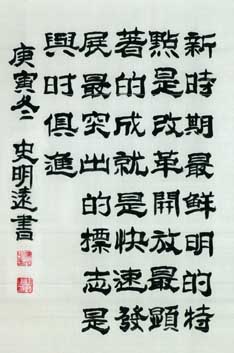 新時期最鮮明的特
點是改革開放最顯
著的成就是快速發
展最突出的標志是
與时俱進
庚寅冬 史明遠書